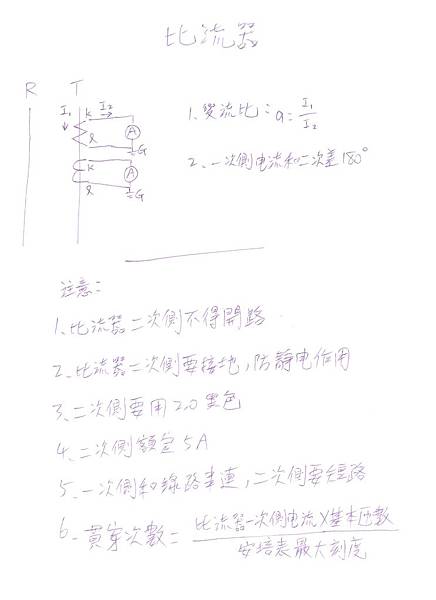 比流器
R T
I₁ k I₂ A
l G
k A
l G
1、變流比:a= I₁/I₂
2、一次側电流和二次差180°
注意:
1、比流器二次側不得開路
2、比流器二次側要接地,防靜电作用
3、二次側要用2.0黑色
4、二次側額定5A
5、一次側和線路串連,二次側要短路
6、貫穿次數= 比流器一次側电流X基本匝數
安培表最大刻度